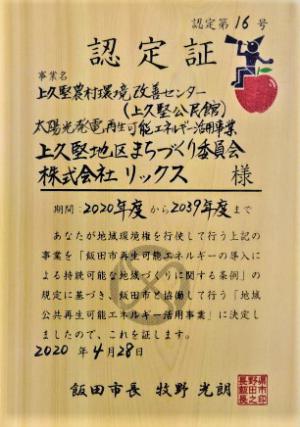 認定第16号
認定証
事業名
上久堅農村環境改善センター
(上久堅公民館)
太陽光発電再生可能エネルギー活用事業
上久堅地区まちづくり委員会
株式会社リックス 様
期間:2020年度から2039年度まで
あなたが地域環境権を行使して行う上記の
事業を「飯田市再生可能エネルギーの導入に
よる持続可能な地域づくりに関する条例」の
規定に基づき、飯田市と協働して行う「地域
公共再生可能エネルギー活用事業」に決定し
ましたので、これを証します。
2020年4月28日
飯田市長 牧野光朗